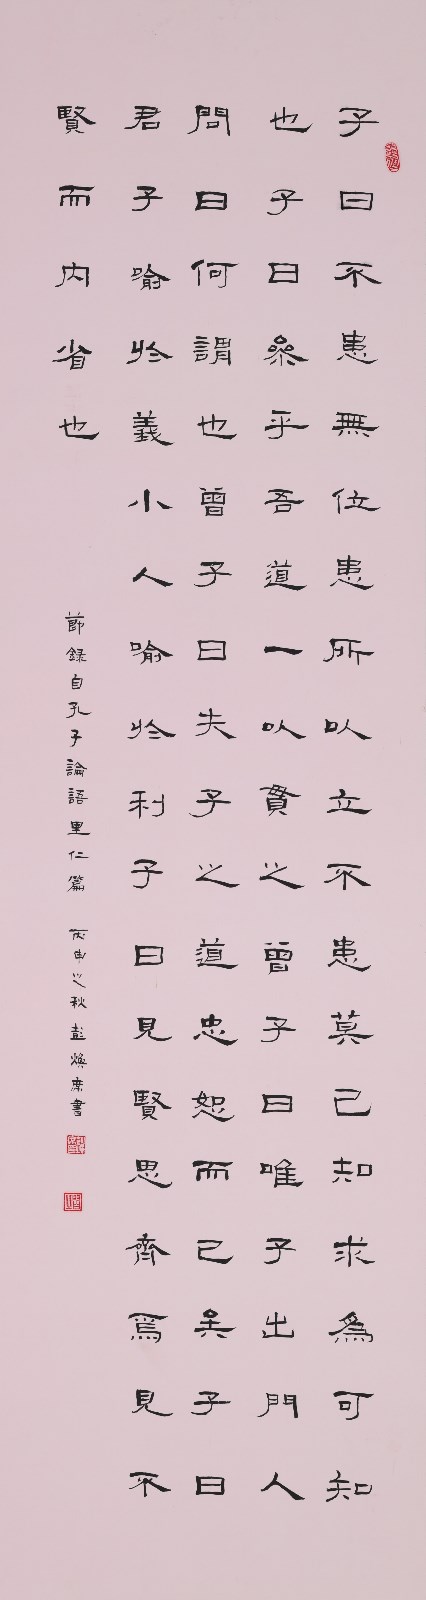 子曰不患無位患所以立不患莫己知求為可知
也子曰參乎吾道一以貫之曾子曰唯子出門人
問曰何謂也曾子曰夫子之道忠恕而已矣子曰
君子喻於義小人喻於利子曰見賢思齊焉見不
賢而內省也
節錄自孔子論語里仁篇 丙申之秋彭煥庭書